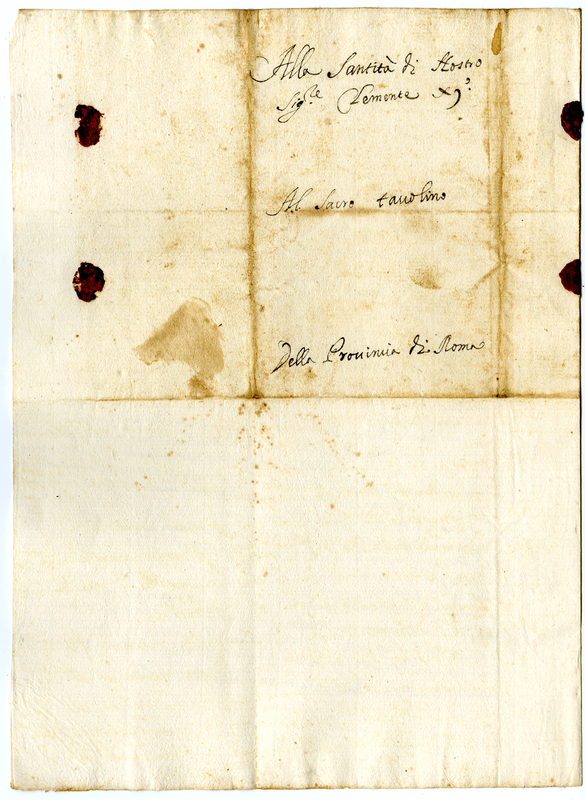 Alla Santità di Nostro
Sig.re Clemente XI.o
Al Sacro tauolino
Della Prouincia di Roma